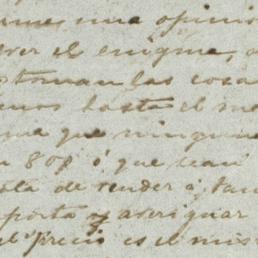 una opinio
el enigma, o
toman las cosa
enos hasta el me
ma que ningun
800 ó que sean
de vender á tan
porta y averiguar
el precio es el mis